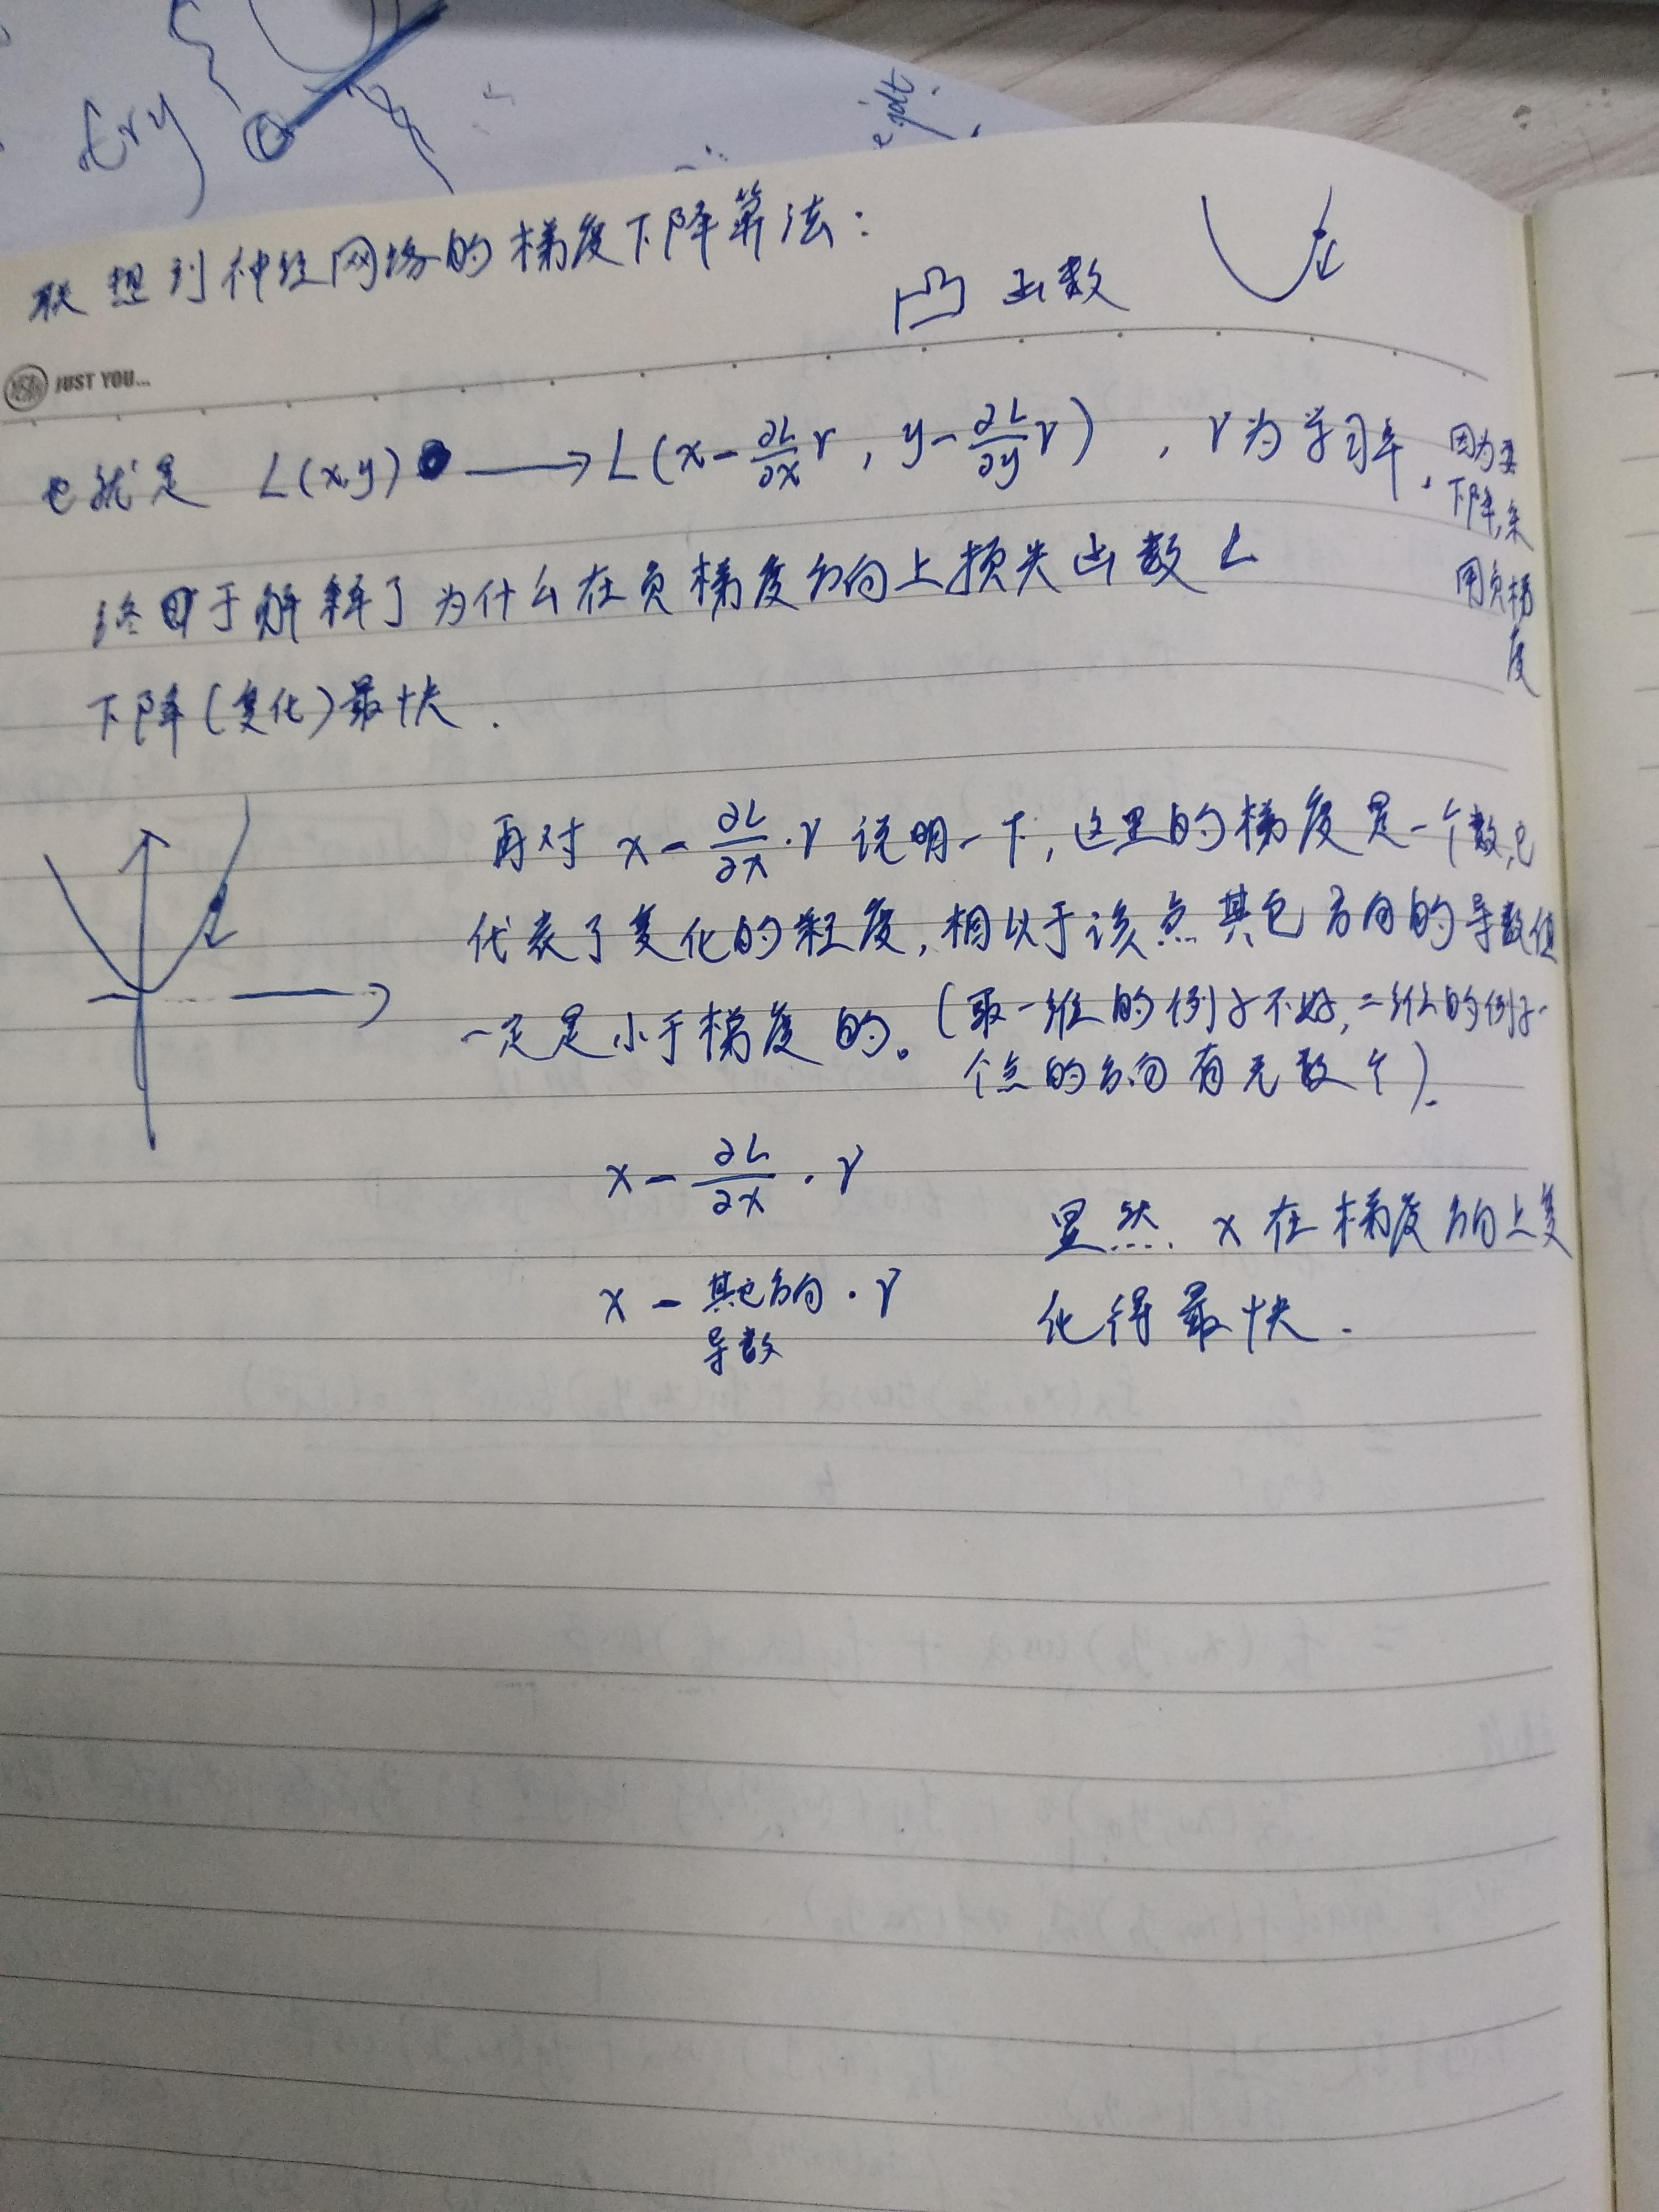 try
联想到神经网络的梯度下降算法：
凸函数
JUST YOU...
也就是 L(x,y) → L(x-∂L/∂x r, y-∂L/∂y r), r为学习率.
因为要
下降,采
用负梯
度
终于解释了为什么在负梯度方向上损失函数L
下降(变化)最快.
再对 x-∂L/∂x·r 说明一下,这里的梯度是一个数,它
代表了变化的程度,相似于该点其它方向的导数值
一定是小于梯度的。(取一维的例子不好,二维的例子一
个点的方向有无数个).
x-∂L/∂x·r
显然 x在梯度方向上变
x-其它方向·r
导数
化得最快.